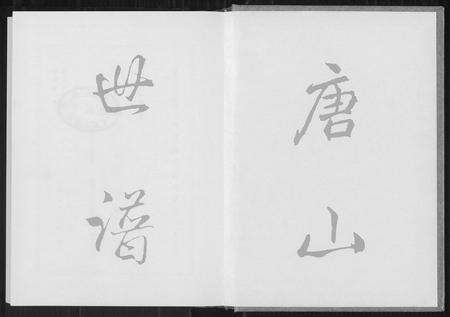 唐山
世譜